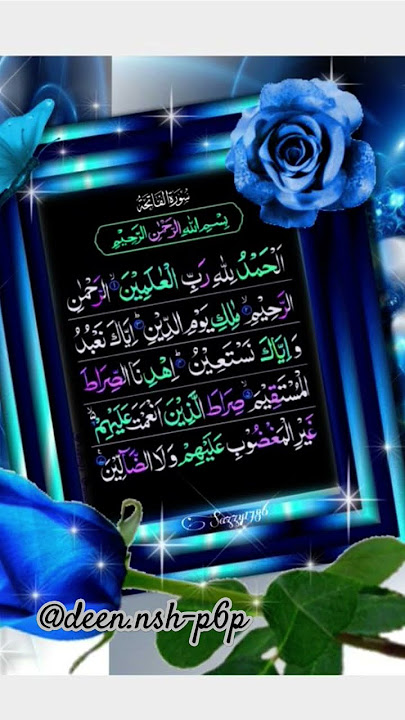 سُورَةُ الْفَاتِحَةِ
بِسْمِ اللهِ الرَّحْمٰنِ الرَّحِيْمِ
اَلْحَمْدُ لِلّٰهِ رَبِّ الْعٰلَمِيْنَ ۙ۱ الرَّحْمٰنِ
الرَّحِيْمِ ۙ۲ مٰلِكِ يَوْمِ الدِّيْنِ ؕ۳ اِيَّاكَ نَعْبُدُ
وَ اِيَّاكَ نَسْتَعِيْنُ ؕ۴ اِهْدِنَا الصِّرَاطَ
الْمُسْتَقِيْمَ ۙ۵ صِرَاطَ الَّذِيْنَ اَنْعَمْتَ عَلَيْهِمْ ۙ۶
غَيْرِ الْمَغْضُوْبِ عَلَيْهِمْ وَ لَا الضَّآلِّيْنَ ۷
Sazzy1786
@deen.nsh-p6p